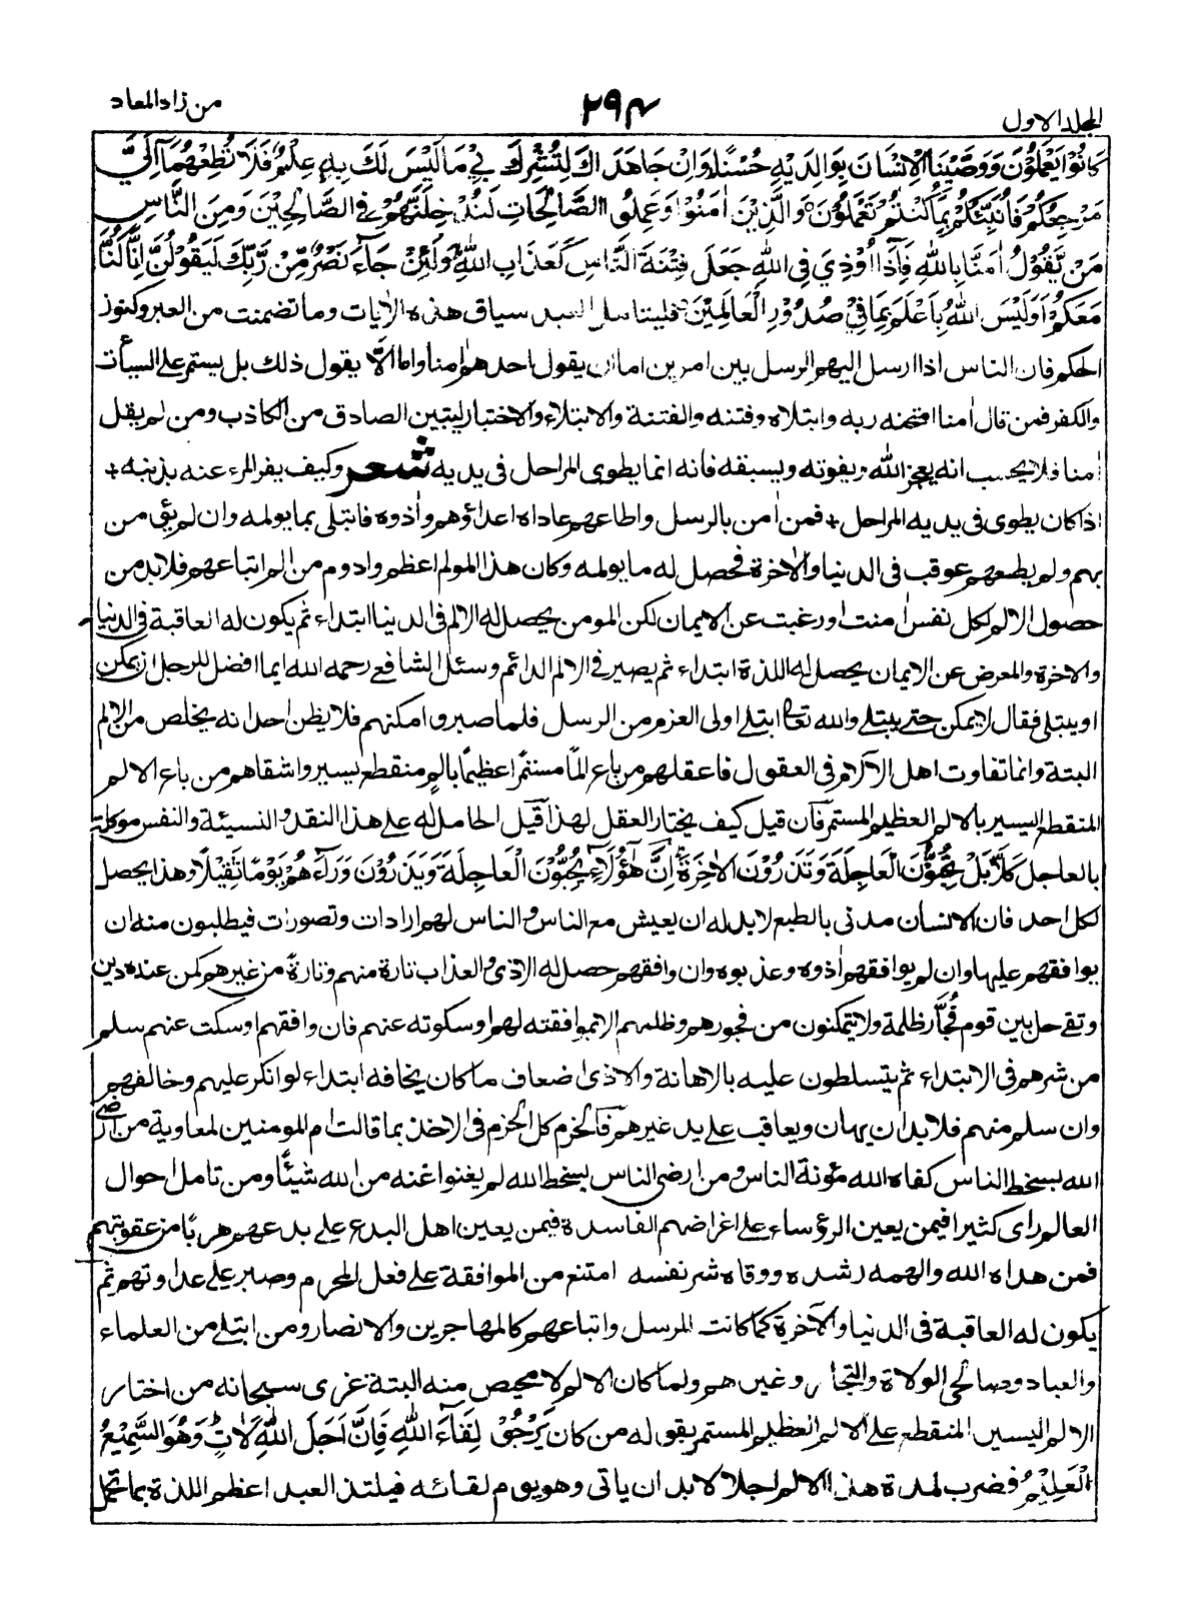 المجلد الاول
۲۹۴
من زاد المعاد
كَانُوْا يَعْمَلُوْنَ وَوَصَّيْنَا الْاِنْسَانَ بِوَالِدَيْهِ حُسْنًا وَاِنْ جَاهَدَاكَ لِتُشْرِكَ بِيْ مَا لَيْسَ لَكَ بِهٖ عِلْمٌ فَلَا تُطِعْهُمَا اِلَيَّ
مَرْجِعُكُمْ فَاُنَبِّئُكُمْ بِمَا كُنْتُمْ تَعْمَلُوْنَ وَالَّذِيْنَ اٰمَنُوْا وَعَمِلُوا الصَّالِحَاتِ لَنُدْخِلَنَّهُمْ فِي الصَّالِحِيْنَ وَمِنَ النَّاسِ
مَنْ يَّقُوْلُ اٰمَنَّا بِاللهِ فَاِذَا اُوْذِيَ فِي اللهِ جَعَلَ فِتْنَةَ النَّاسِ كَعَذَابِ اللهِ وَلَئِنْ جَآءَ نَصْرٌ مِّنْ رَّبِّكَ لَيَقُوْلُنَّ اِنَّا كُنَّا
مَعَكُمْ اَوَلَيْسَ اللهُ بِاَعْلَمَ بِمَا فِيْ صُدُوْرِ الْعَالَمِيْنَ فليتامل العبد سياق هذه الاٰيات وما تضمنت من العبر وكنوز
الحكم فان الناس اذا ارسل اليهم الرسل بين امرين اما ان يقول احدهم اٰمنا واما الّا يقول ذلك بل يستمر على السيأت
والكفر فمن قال اٰمنا امتحنه ربه وابتلاه وفتنه والفتنة والابتلاء والاختبار ليتبين الصادق من الكاذب ومن لم يقل
اٰمنا فلا يحسب انه يعجز الله ويفوته ويسبقه فانه انما يطوى المراحل فى يديه شعر وكيف يفر المرء عنه بذنبه +
اذا كان يطوى فى يديه المراحل + فمن اٰمن بالرسل واطاعهم عاداه اعداؤهم واٰذوه فابتلى بما يولمه وان لم يؤمن
بهم ولم يطعهم عوقب فى الدنيا والاٰخرة فحصل له ما يولمه وكان هذا المولم اعظم وادوم من الم اتباعهم فلا بد من
حصول الالم لكل نفس اٰمنت او رغبت عن الايمان لكن المومن يحصل له الالم فى الدنيا ابتداء ثم يكون له العاقبة فى الدنيا
والاخرة والمعرض عن الايمان يحصل له اللذة ابتداء ثم يصير فى الالم الدائم وسئل الشافعى رحمه الله ايما افضل للرجل ان يمكن
او يبتلى فقال لا يمكن حتى يبتلى والله تعالى ابتلى اولى العزم من الرسل فلما صبروا مكنهم فلا يظن احد انه يخلص من الالم
البتة وانما تفاوت اهل الآلام فى العقول فاعقلهم من باع المًا مستمرًا عظيمًا بالم منقطع يسير واشقاهم من باع الالم
المنقطع اليسير بالالم العظيم المستمر فان قيل كيف يختار العقل لهذا قيل الحامل له على هذا النقد والنسيئة والنفس موكلة
بالعاجل كَلَّا بَلْ تُحِبُّوْنَ الْعَاجِلَةَ وَتَذَرُوْنَ الْاٰخِرَةَ اِنَّ هٰؤُلَاءِ يُحِبُّوْنَ الْعَاجِلَةَ وَيَذَرُوْنَ وَرَآءَهُمْ يَوْمًا ثَقِيْلًا وهذا يحصل
لكل احد فان الانسان مدنى بالطبع لا بد له ان يعيش مع الناس والناس لهم ارادات وتصورات فيطلبون منه ان
يوافقهم عليها وان لم يوافقهم اٰذوه وعذبوه وان وافقهم حصل له الاذى والعذاب تارة منهم وتارةً من غيرهم كمن عنده دين
وتقى حل بين قوم فُجَّار ظلمة ولا يتمكنون من فجورهم وظلمهم الا بموافقته لهم او سكوته عنهم فان وافقهم او سكت عنهم سلم
من شرهم فى الابتداء ثم يتسلطون عليه بالاهانة والاذى اضعاف ما كان يخافه ابتداء لو انكر عليهم وخالفهم
وان سلم منهم فلا بد ان يهان ويعاقب على يد غيرهم فالحزم كل الحزم فى الاخذ بما قالت ام المومنين لمعاوية من ارضى
الله بسخط الناس كفاه الله مؤنة الناس ومن ارضى الناس بسخط الله لم يغنوا عنه من الله شيئًا ومن تامل احوال
العالم راى كثيرا فيمن يعين الرؤساء على اغراضهم الفاسدة فيمن يعين اهل البدع على بدعهم هربًا من عقوبتهم
فمن هداه الله والهمه رشده ووقاه شر نفسه امتنع من الموافقة على فعل المحرم وصبر على عداوتهم ثم
يكون له العاقبة فى الدنيا والآخرة كما كانت للرسل واتباعهم كالمهاجرين والانصار ومن ابتلى من العلماء
والعباد وصالحى الولاة والتجار وغيرهم ولما كان الالم لا محيص منه البتة عزى سبحانه من اختار
الالم اليسير المنقطع على الالم العظيم المستمر بقوله من كان يَرْجُوْ لِقَآءَ اللهِ فَاِنَّ اَجَلَ اللهِ لَاٰتٍ وَهُوَ السَّمِيْعُ
الْعَلِيْمُ فضرب لمدة هذا الالم اجلا لا بد ان ياتى وهو يوم لقائه فيلتذ العبد اعظم اللذة بما تحمل